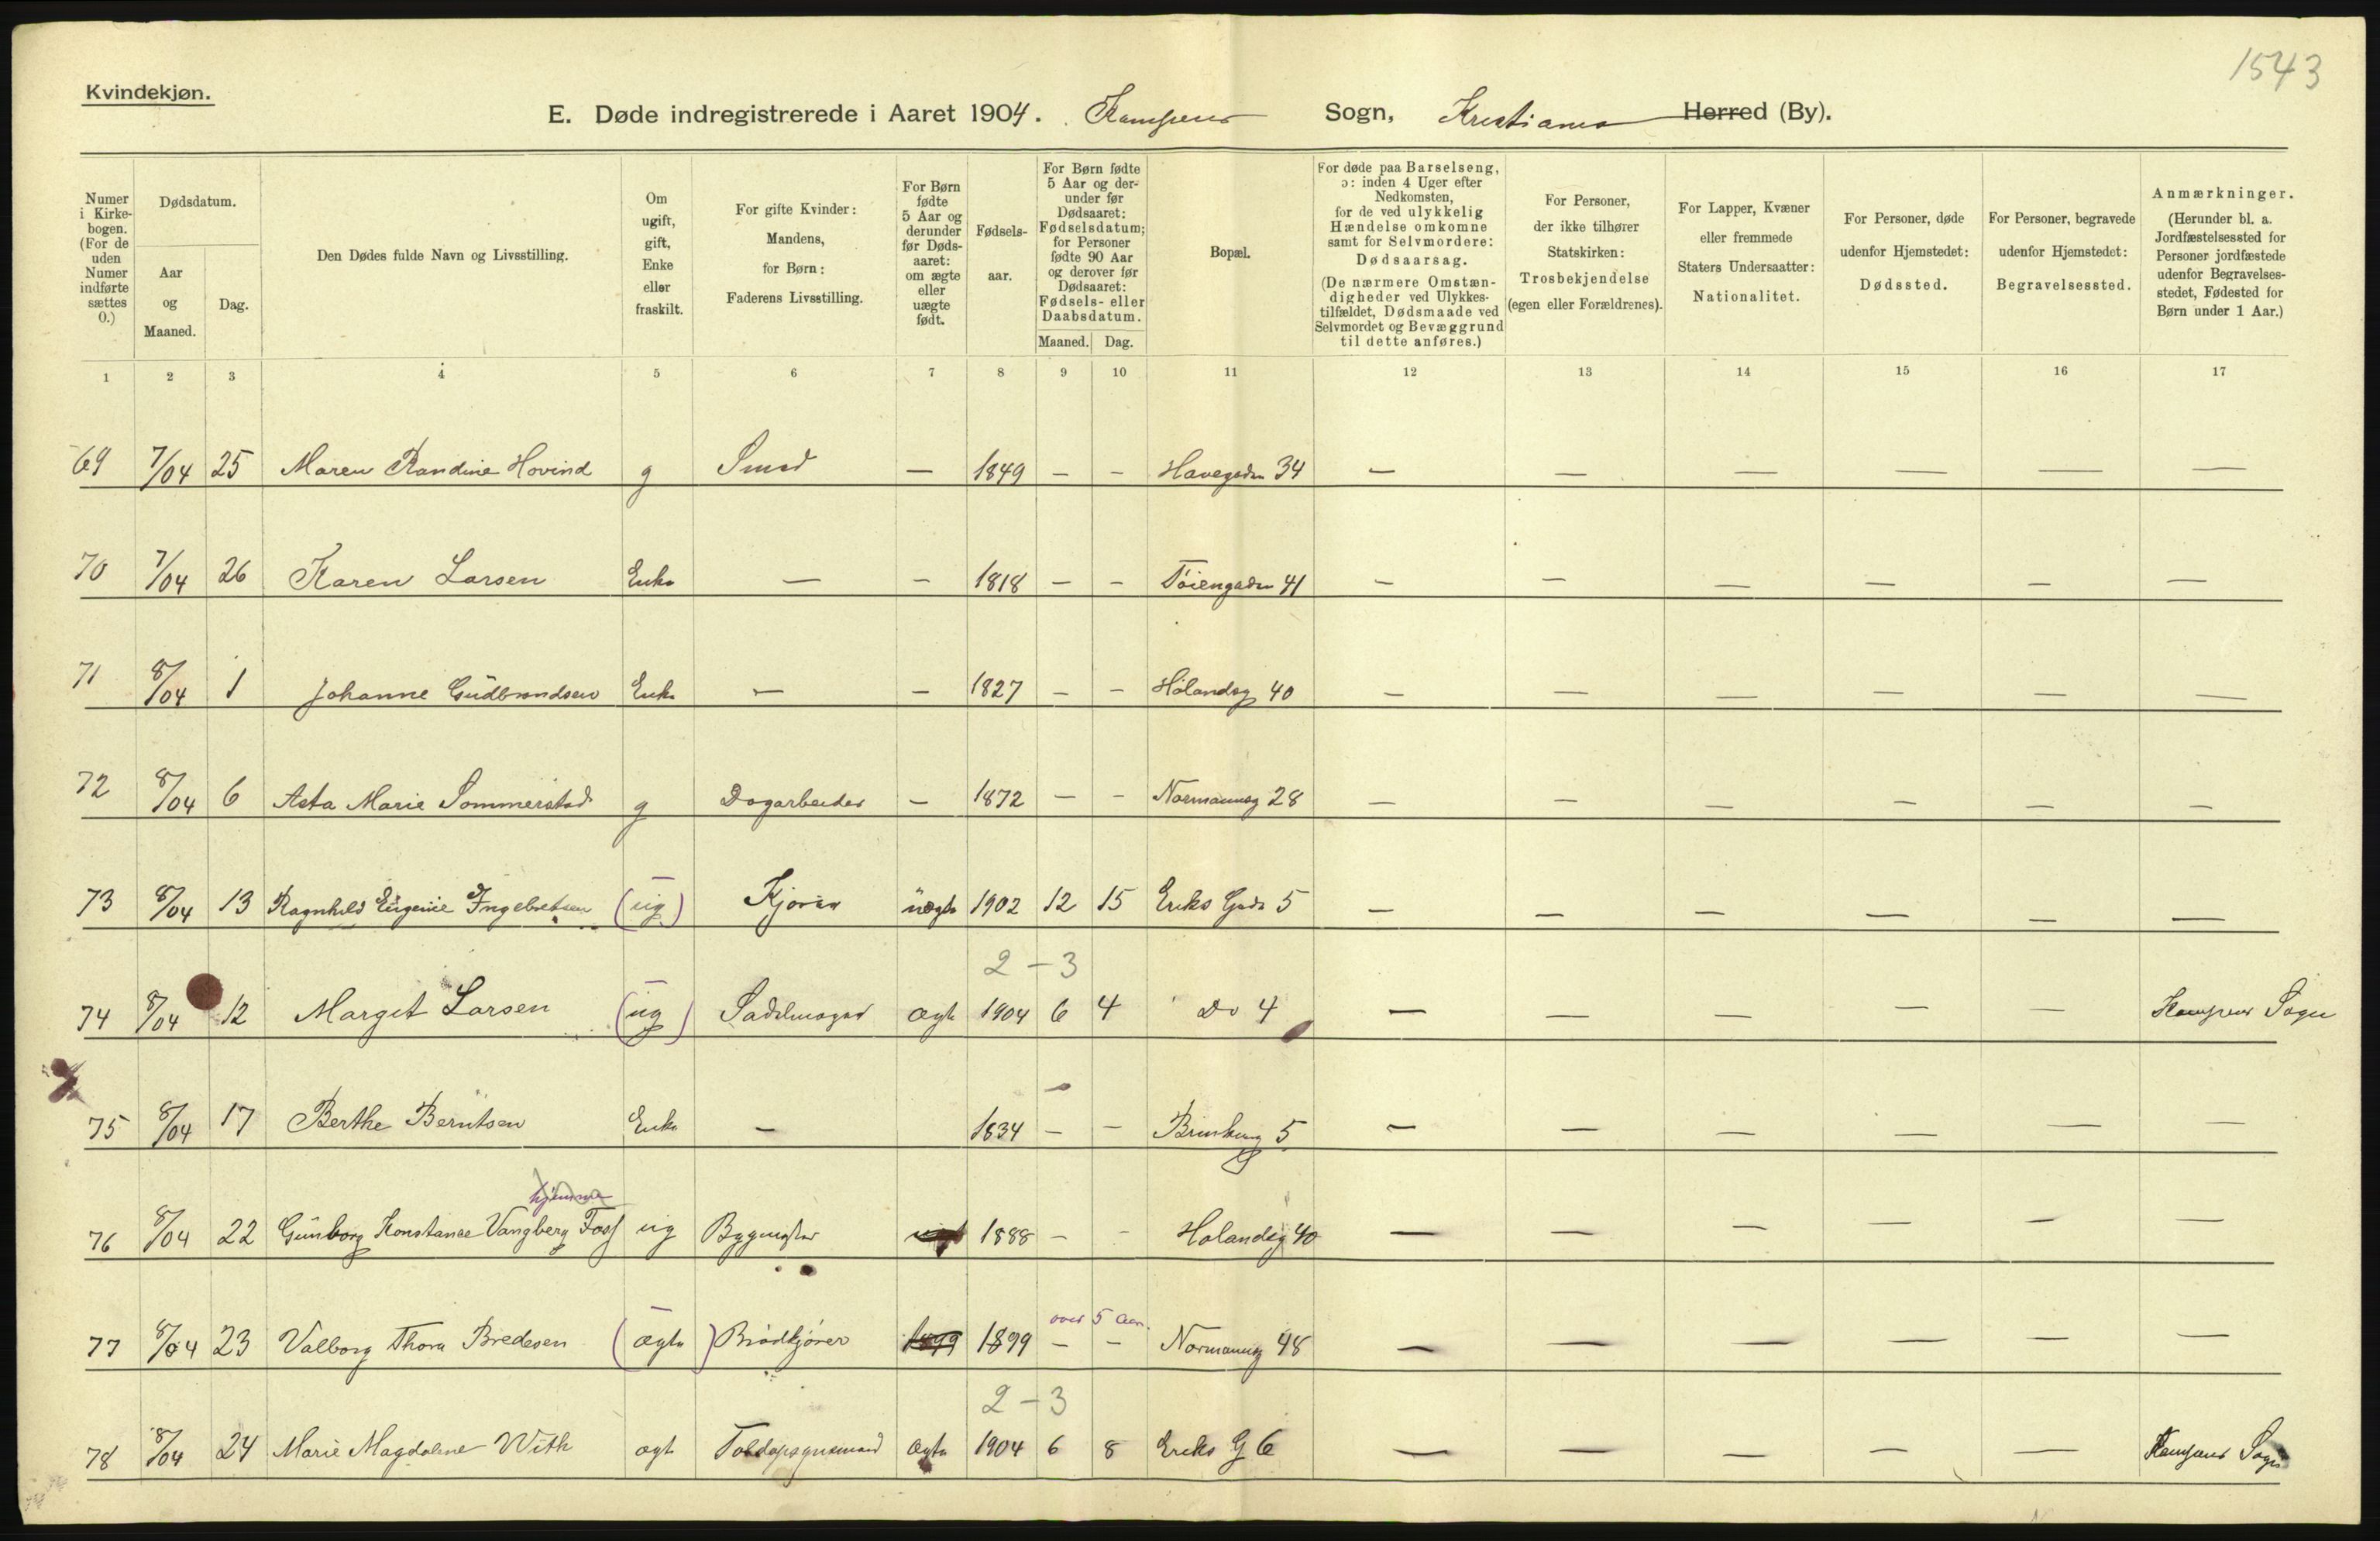 1543
Kvindekjøn.
E. Døde indregistrerede i Aaret 1904. Kampens Sogn, Kristiania Herred (By).
Numer i Kirkebogen. (For de uden Numer indførte sættes 0.)
Dødsdatum.
Aar og Maaned.
Dag.
Den Dødes fulde Navn og Livsstilling.
Om ugift, gift, Enke eller fraskilt.
For gifte Kvinder: Mandens, for Børn: Faderens Livsstilling.
For Børn fødte 5 Aar og derunder før Dødsaaret: om ægte eller uægte født.
Fødselsaar.
For Børn fødte 5 Aar og derunder før Dødsaaret: Fødselsdatum; for Personer fødte 90 Aar og derover før Dødsaaret: Fødsels- eller Daabsdatum.
Maaned. Dag.
Bopæl.
For døde paa Barselseng, ɔ: inden 4 Uger efter Nedkomsten, for de ved ulykkelig Hændelse omkomne samt for Selvmordere: Dødsaarsag. (De nærmere Omstændigheder ved Ulykkestilfældet, Dødsmaade ved Selvmordet og Bevæggrund til dette anføres.)
For Personer, der ikke tilhører Statskirken: Trosbekjendelse (egen eller Forældrenes).
For Lapper, Kvæner eller fremmede Staters Undersaatter: Nationalitet.
For Personer, døde udenfor Hjemstedet: Dødssted.
For Personer, begravede udenfor Hjemstedet: Begravelsessted.
Anmærkninger. (Herunder bl. a. Jordfæstelsessted for Personer jordfæstede udenfor Begravelsesstedet, Fødested for Børn under 1 Aar.)
1 2 3 4 5 6 7 8 9 10 11 12 13 14 15 16 17
69 7/04 25 Maren Randine Hovind g Smed — 1849 — — Havegaden 34 — — — — — —
70 7/04 26 Karen Larsen Enke — — 1818 — — Tøiengaden 41 — — — — — —
71 8/04 1 Johanne Gudbrandsen Enke — — 1827 — — Hølandsg 40 — — — — — —
72 8/04 6 Asta Marie Sommerstad g Dagarbeider — 1872 — — Normannsg 28 — — — — — —
73 8/04 13 Ragnhild Eugenie Ingebretsen (ug) Kjører uægte 1902 12 15 Eriks Gade 5 — — — — — —
2 – 3
74 8/04 12 Margit Larsen (ug) Sadelmager ægte 1904 6 4 Do 4 — — — — — Kampens Sogn
75 8/04 17 Berthe Berntsen Enke — 1834 — — 5 — — — — — —
hjemme
76 8/04 22 Gunborg Konstanse Vangberg Foss ug Bygmester 1888 — — Hølandsg 40 — — — — — —
over 5 Aar.
77 8/04 23 Valborg Thora Bredesen (ægte) Brødkjører 1899 1899 — — Normannsg 48 — — — — — —
2 – 3
78 8/04 24 Marie Magdalene With ægt Toldopsynsmand ægte 1904 6 8 Eriks G 6 — — — — — Kampens Sogn